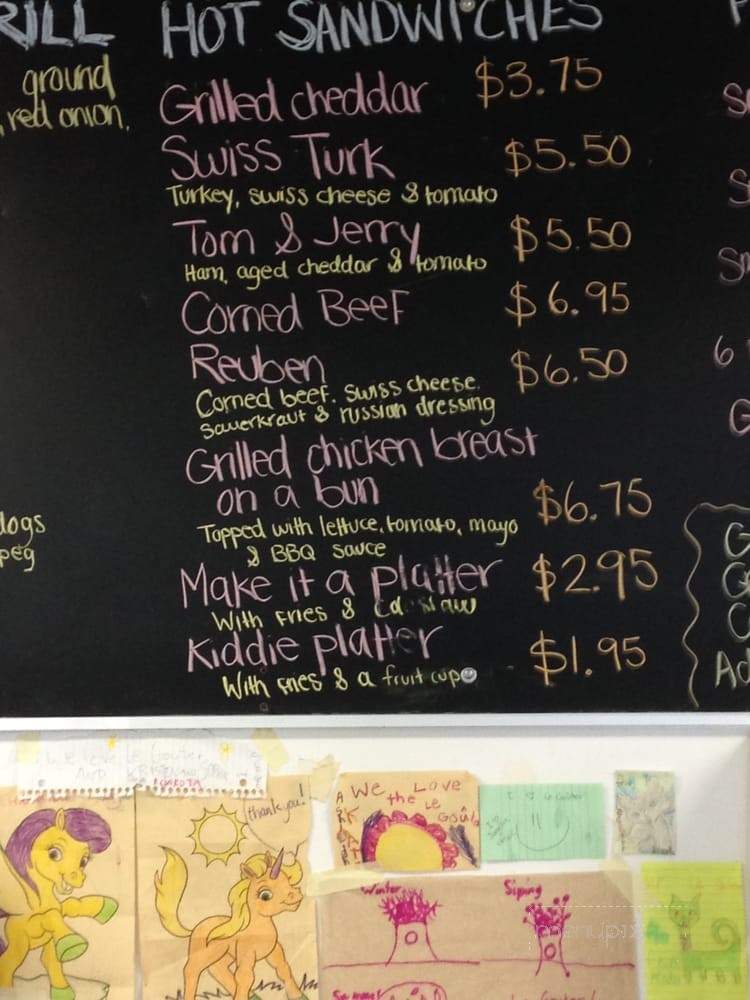 RILL HOT SANDWICHES
ground
, red onion,
Grilled cheddar $3.75
Swiss Turk $5.50
Turkey, swiss cheese & tomato
Tom & Jerry $5.50
Ham, aged cheddar & tomato
Corned Beef $6.95
Reuben $6.50
Corned beef. Swiss cheese,
sauerkraut & russian dressing
Grilled chicken breast
on a bun $6.75
Topped with lettuce, tomato, mayo
& BBQ sauce
dogs
peg
Make it a platter $2.95
With Fries &
Kiddie platter $1.95
With fries & a fruit cup
6
Ad
AND
thank you!
We Love
the Le
Winter
menupix